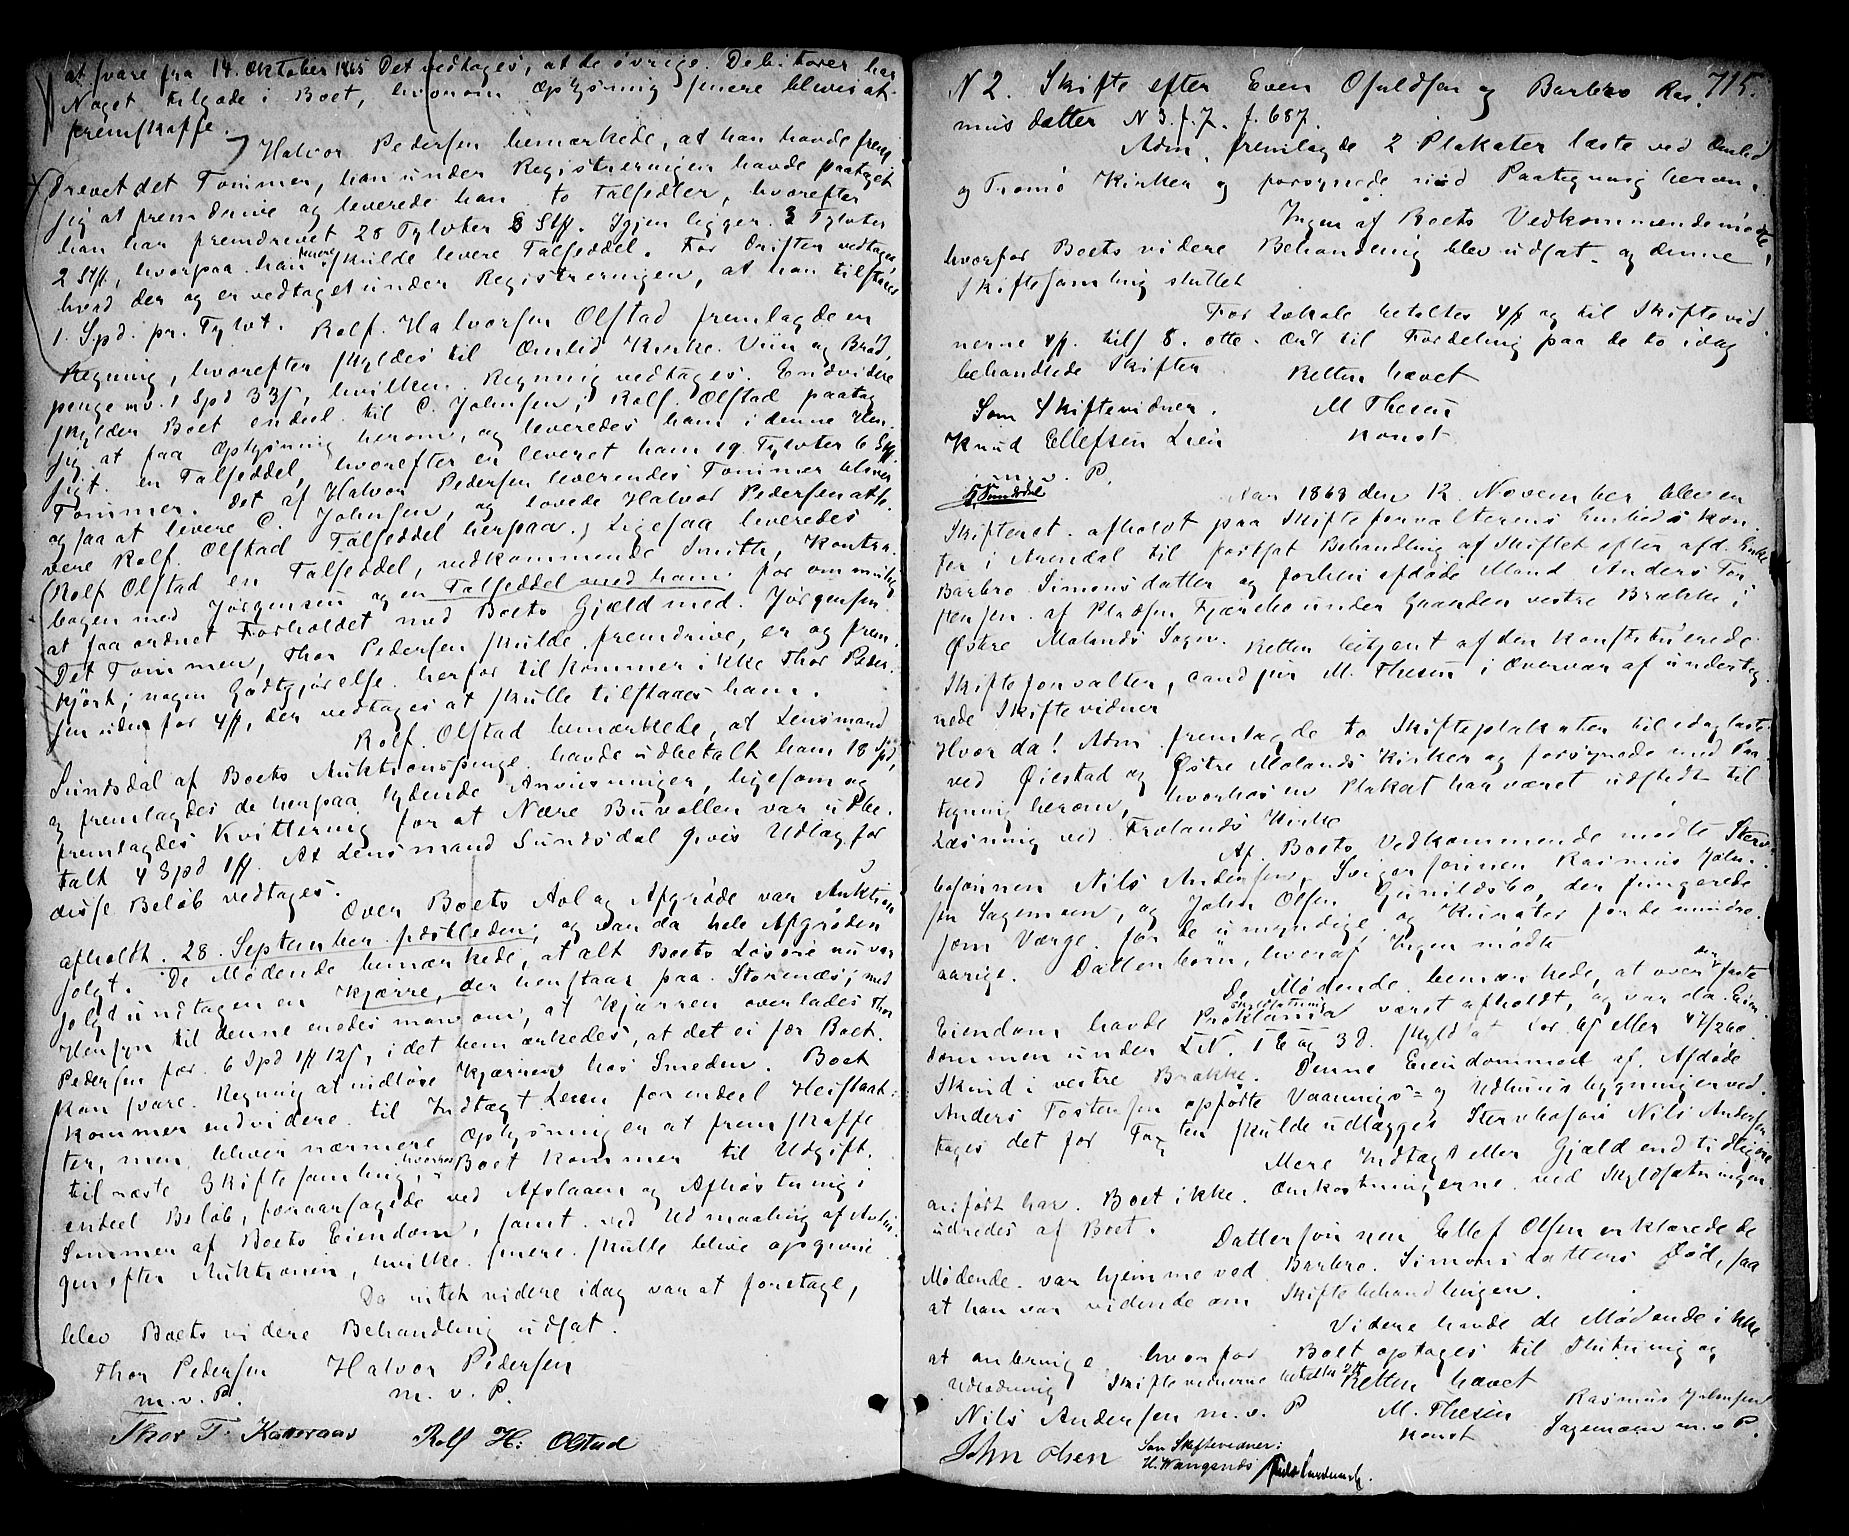 at svare fra 14. Oktober 1865 Det vedtages, at de øvrige Debitorer har
Noget tilgode i Boet, hvorom Oplysning senere blives at
fremskaffe.
Halvor Pedersen bemærkede, at han havde frem
drevet det Tømmer, han under Registreringen havde paataget
sig at fremdrive og leverede han to Talsedler, hvorefter
han har fremdrevet 28 Tylvter 8 Stk. Igjen ligger 3 Tylvter
2 Stk, hvorpaa han senere skulde levere Talseddel. For Driften vedtages
hvad der og er vedtaget under Registreringen, at han tilstaaes
1. Spd. pr. Tylvt. Rolf Halvorsen Olstad fremlagde en
Regning, hvorefter skyldes til Omlid Kirke Viin og Brød
penge mv. 1 Spd 33 s, hvilken Regning vedtages. Endvidere
skylder Boet endeel til C. Johnsen; Rolf Olstad paatog
sig at faa Oplysning herom, og leveredes ham i denne Hen
sigt en Talseddel, hvorefter er leveret ham 19 Tylvter 6 Stk
Tømmer. Det af Halvor Pedersen leverendes Tømmer bliver
ogsaa at levere C. Johnsen, og lovede Halvor Pedersen at le
vere Rolf Olstad Talseddel herpaa. Ligesaa leveredes
Rolf Olstad en Talseddel, vedkommende Smith, Kontra
bogen med Jørgensen og en Talseddel ved ham for om mulig
at faa ordnet Forholdet med Boets Gjæld med Jørgensen.
Det Tømmer, Thor Pedersen skulde fremdrive, er og frem
kjørt; nogen Godtgjørelse herfor tilkommer ikke Thor Peder
sen uden for 4 ff, der vedtages at skulle tilstaaes ham.
Rolf Olstad bemærkede, at Lensmand
Sundsdal af Boets Auktionspenge havde udbetalt ham 18 Spd,
og fremlagdes de herpaa lydende Anvisninger, ligesom og
fremlagdes Kvittering for at Nære Buvollen var udbe
talt 4 Spd 1 ff. At Lensmand Sundsdal gives Udlag for
disse Beløb vedtages.
Over Boets Avl og Afgrøde var Auktion
afholdt 28. September sidstleden, og var da hele Afgrøden
solgt. De Mødende bemærkede, at alt Boets Løsøre nu var
solgt undtagen en Kjærre, der henstaar paa Storenæs; med
Hensyn til denne enedes man om, at Kjærren overlades Thor
Pedersen for 6 Spd 1 ff 12 s, idet bemærkedes, at det ei før Boet
kan svare Regning at indløse Kjærren hos Smeden. Boet
kommer endvidere til Indtægt Leien for endeel Heistaat
ter, men bliver nærmere Oplysninger at fremskaffe
til næste Skiftesamling, hvorhos Boet kommer til Udgift
endeel Beløb, foraarsagede ved Afslaaen og Afhøstning i
Sommer af Boets Eiendom, samt ved Udmaaling af Avlin
gen efter Auktionen, hvilke senere skulle blive opgivne.
Da intet videre idag var at foretage,
blev Boets videre Behandling udsat.
Thor Pedersen Halvor Pedersen
m. v. P. m. v. P.
Thor T. Kateraas Rolf H: Olstad
715.
N 2. Skifte efter Even Osuldsen og Barbro Ras
mus datter N 3. f. 7. f. 687.
Adm. fremlagde 2 Plakater læste ved Omlid
og Tromø Kirker og forsynede med Paategning herom.
Ingen af Boets Vedkommende mødte,
hvorfor Boets videre Behandling blev udsat og denne
Skiftesamling sluttet
For Lokale betaltes 4 ff og til Skiftevid
nerne 4 ff. tils 8. otte. Ort til Fordeling paa de to idag
behandlede Skifter. Retten hævet
Som Skiftevidner. M Thesen
Knud Ellefsen Lien Konst
m. v. P.
T. Sundsdal
Aar 1868 den 12 November blev en
Skifteret afholdt paa Skifteforvalterens Embedskon
tor i Arendal til fortsat Behandling af Skiftet efter afd. Enke
Barbro Simonsdatter og forhen afdøde Mand Anders Tor
stensen af Pladsen Fjærebo under Gaarden vestre Brække i
Østre Molands Sogn. Retten betjent af den konstituerede
Skifteforvalter, cand jur M. Thesen i Overvær af underteg
nede Skiftevidner
Hvor da! Adm. fremlagde to Skifteplakater til idag læste
ved Øiestad og Østre Molands Kirker og forsynede med Paa
tegning herom, hvorhos en Plakat har været udstedt til
Læsning ved Frolands Kirke
Af Boets Vedkommende mødte Sterv
bosønnen Nils Andersen, Svigersønnen Rasmus John
sen Sagemoen, og John Olsen Gunildsbo, der fungerede
som Værge for de umyndige og Kurator for de mindre
aarige. Datterbørn, hveraf Ingen mødte
De Mødende bemærkede, at over den faste
Eiendom havde skyldsætning været afholdt, og var da Eien
dommen under LN. 1 E og 38 skyldsat for 6 s eller 47/260
Skind i vestre Brække. Denne Eiendom med af Afdøde
Anders Tostensen opførte Vaanings- og Udhuusbygninger ved
toges det for Taxten skulde udlægges Stervbosøn Nils Andersen
Mere Indtægt eller Gjæld end tidligere
anført har Boet ikke. Omkostningerne ved Skyldsætningen
udredes af Boet.
Dattersønnen Ellef Olsen erklærede de
Mødende var hjemme ved Barbro Simonsdatters Død, saa
at han var vidende om Skiftebehandlingen.
Videre havde de Mødende ikke
at anbringe hvorfor Boet optages til Slutning og
Udlodning Skiftevidnerne betaltes 2 ff Retten hævet
Nils Andersen m. v. P M. Thesen Rasmus Johnsen
Konst Sagemoen m. v. P.
John Olsen Som Skiftevidner:
H. Wangensøs